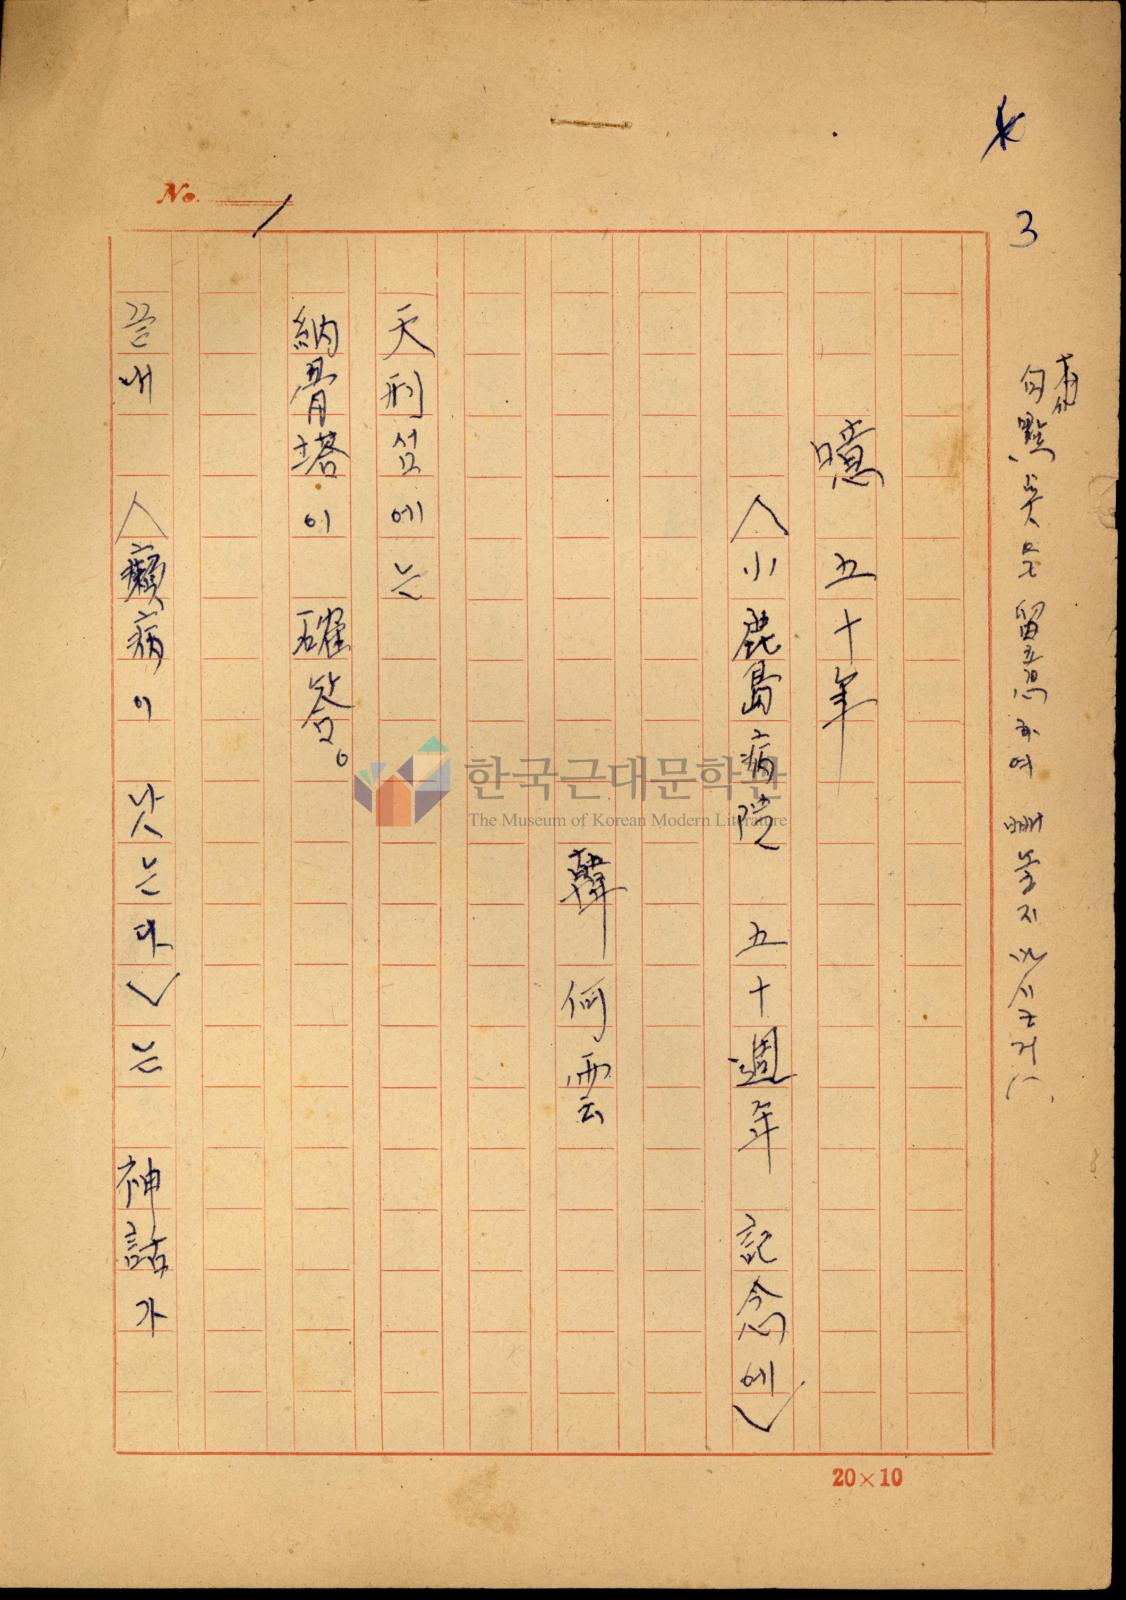 3
No. 1
句點 留意하여 빼놓지 마시

噫 五十年
〈小鹿島病院 五十週年 記念에〉
韓何雲
天刑섬에는
納骨塔이 確答。
끝내 〈癩病이 낫는다〉는 神話가
20×10
한국근대문학관
The Museum of Korean Modern Literature